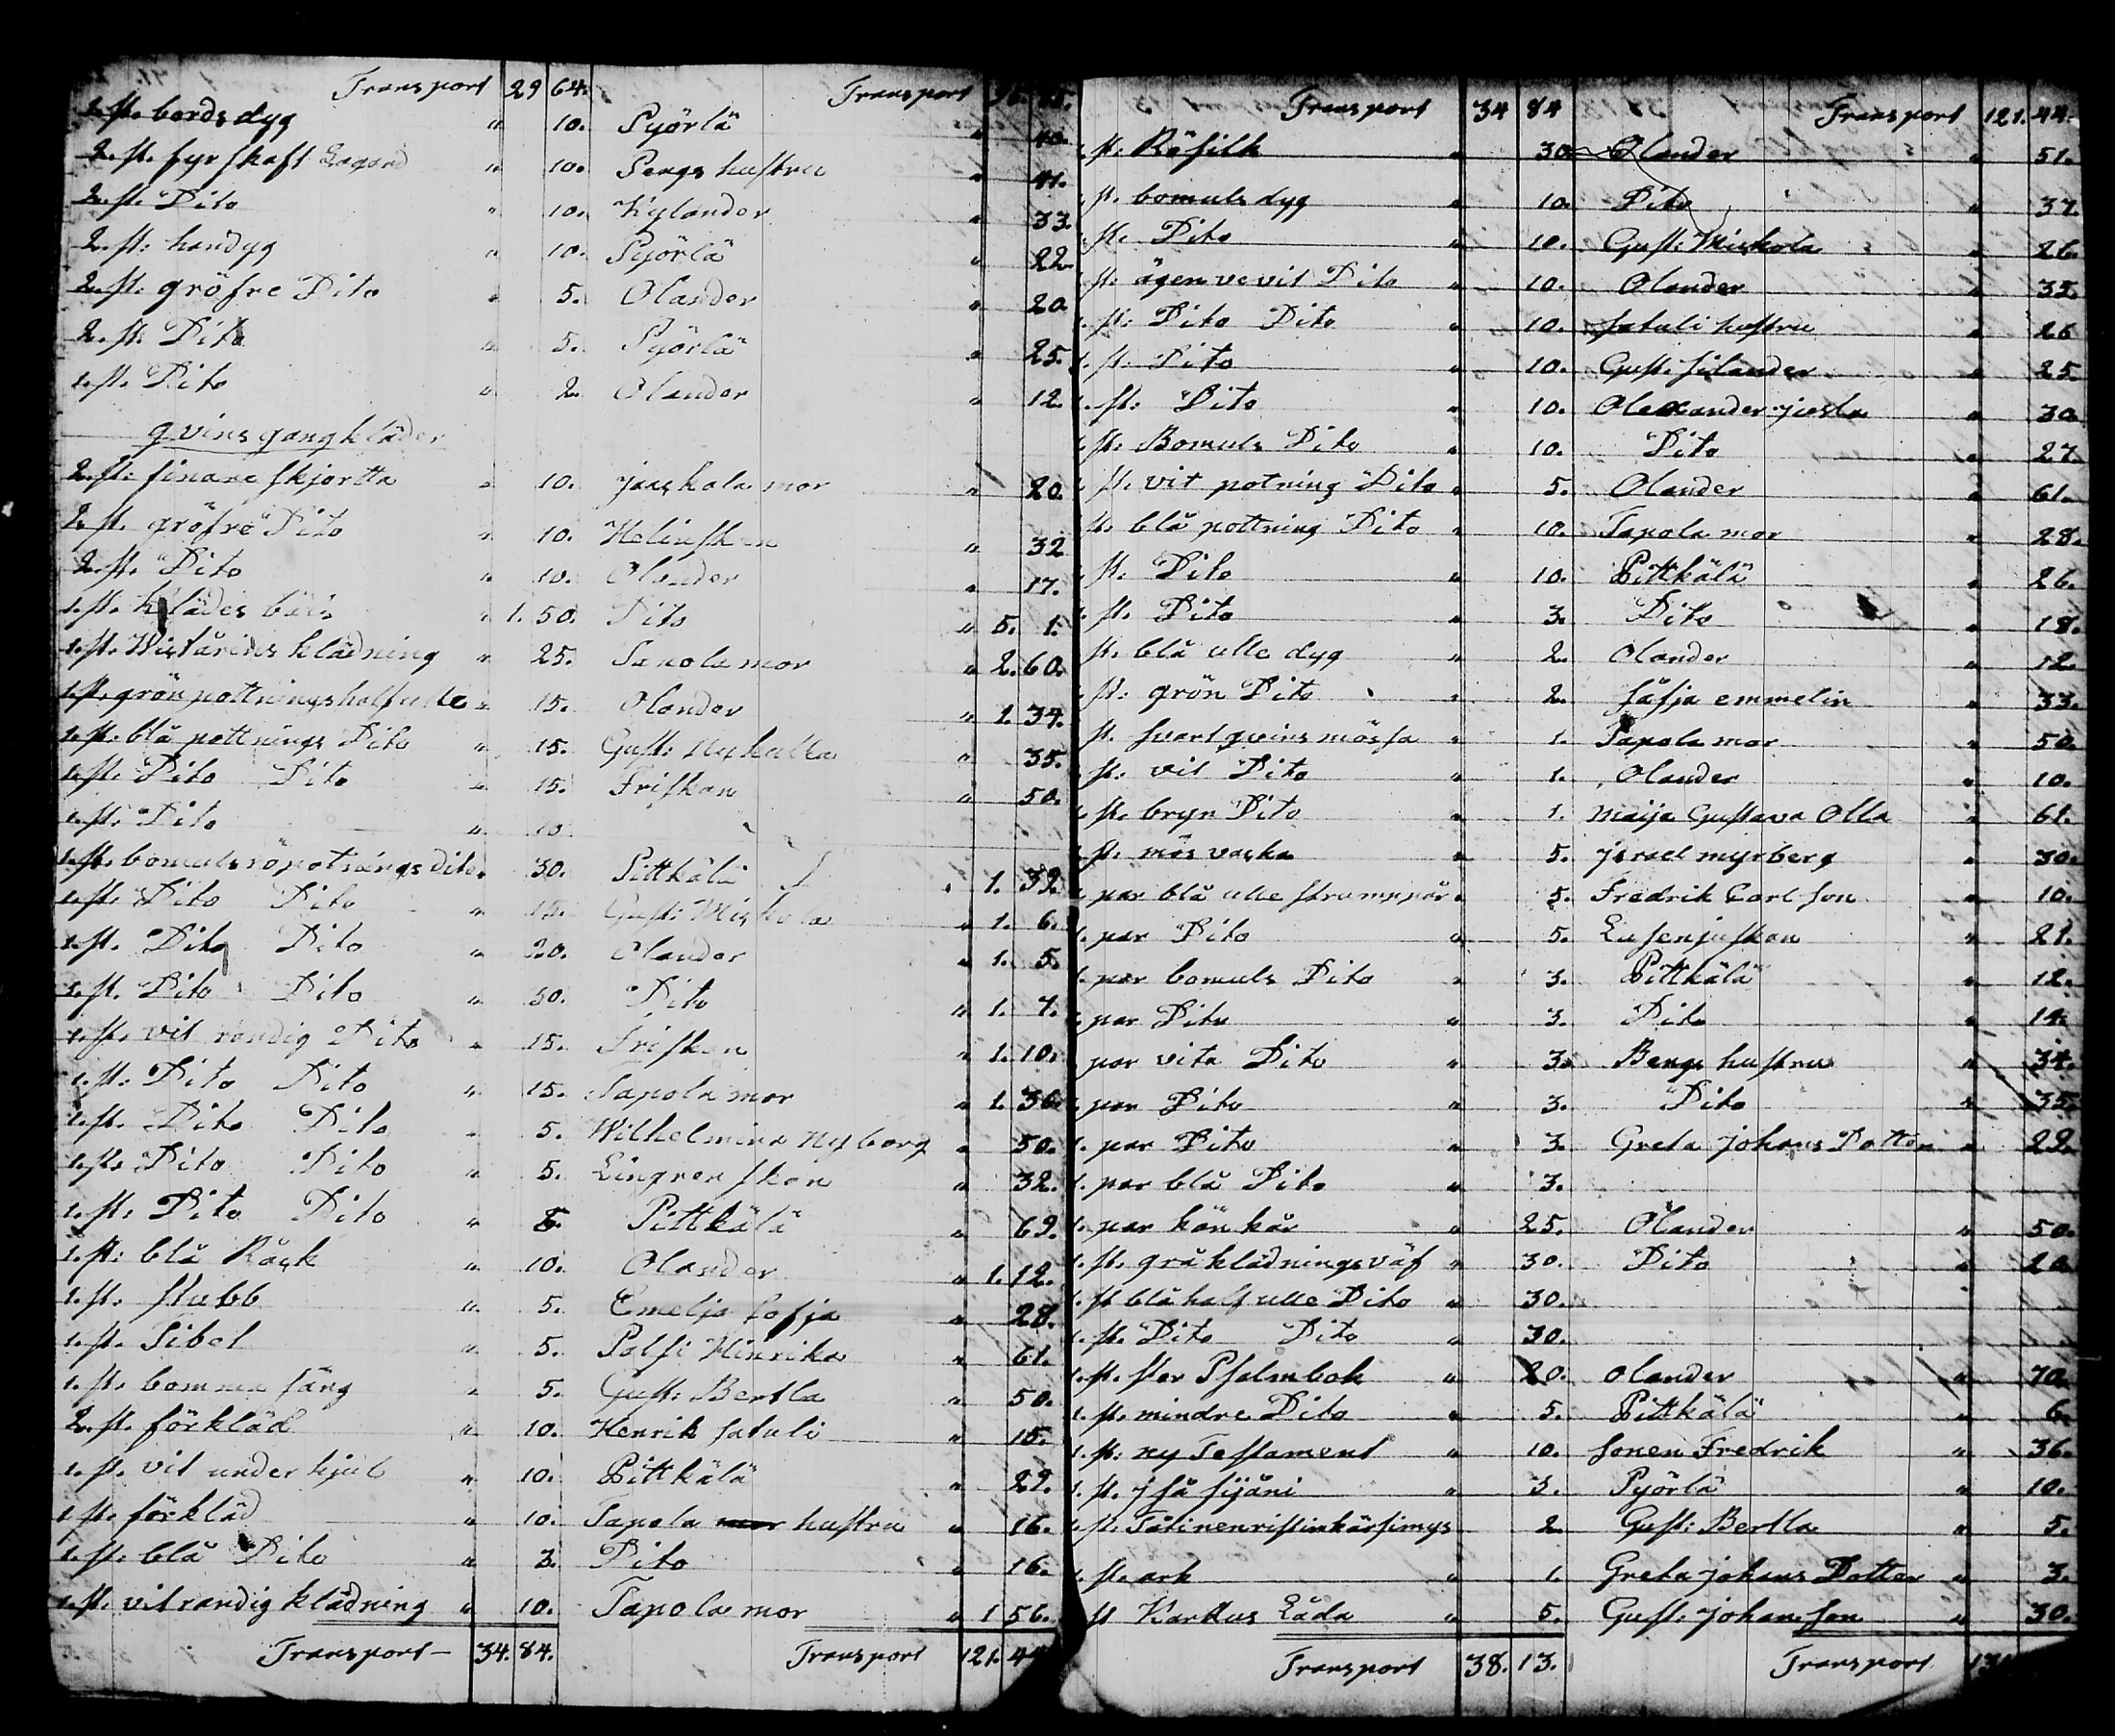 Transport 29 64. Transport 85.
2. st. bords dyg " 10. Pyörlä " 40.
2. st. fyr skaft " 10. hustru " 41.
2. st. Dito " 10. Kylander " 33.
2. st: handyg " 10. Pyörlä " 22.
2. st: gröfre Dito " 5. Olander " 20.
2. st. Dito " 5. Pyörlä " 25.
1. st. Dito " 2. Olander " 12.
qvins gangkläder
2. st: finare skjortta " 10. jaskala mor " 20
2. st. gröfre Dito " 10. Helinskan " 32
2. st. Dito " 10. Olander " 17.
1. st. klädes " 1. 50. Dito " 5. 1.
1. st. klädning " 25. Tapola mor " 2. 60.
1. st. grön pottnings half ulle " 15. Olander " 1. 34.
1. st: blå pottnings Dito " 15. Gust: Nykulla " 35.
1. st. Dito Dito " 15. Friskan " 50.
1. st. Dito " 10
1. st. bomuls röpotnings Dito " 30. Pittkälä " 1. 39.
1. st. Dito Dito " 15. Gust: Miskola " 1. 6.
1. st. Dito Dito " 20. Olander " 1. 5.
1. st. Dito Dito " 30. Dito " 1. 7.
1. st. vit randig Dito " 15. Friskan " 1. 10.
1. st: Dito Dito " 15. Tapola mor " 1. 36.
1. st. Dito Dito " 5. Wilhelmina Nyborg " 50.
1. st. Dito Dito " 5. Lingrenskan " 32.
1. st: Dito Dito " 5. Pittkälä " 69.
1. st: blå Råck " 10. Olander " 1. 12.
1. st. stubb " 5. Emelja sofja " 28.
1. st. Sibel " 5. Palsi Hinrika " 61.
1. st. bomma säng " 5. Gust: Bertla " 50.
2. st. förkläd " 10. Henrik satuli " 15.
1. st. vit under kjul " 10. Pittkälä " 29.
1. st. förkläd " 10. Tapola hustru " 16.
1. st: blå Dito " 3. Dito " 16.
1. st. vit randig klädning " 10. Tapola mor " 1 56.
Transport 34. 84. Transport 121. 44
Transport 34 84 Transport 121. 44.
st: Rösilk " 30 Olander " 51.
st. bomuls dyg " 10. Dito " 37.
st. Dito " 10. Gust: Miskola " 26.
st: ägen vevit Dito " 10. Olander " 35.
1. st: Dito Dito " 10. satuli hustru " 26
1. st: Dito " 10. Gust. silander " 25.
1. st: Dito " 10. Olexander " 30.
st: Bomuls Dito " 10. Dito " 27.
st. vit potning Dito " 5. Olander " 61.
st. blå pottning Dito " 10. Tapola mor " 28.
st. Dito " 10. Pittkälä " 26.
1. st. Dito " 3. Dito " 18.
st. blå ulle dyg " 2. Olander " 12.
st: grön Dito " 2. såfja emmelin " 33.
st. svart qvins mössa " 1. Tapola mor " 50.
st: vit Dito " 1. Olander " 10.
st. bryn Dito " 1. Maija Gustava Olla " 61.
st. mös vaska " 5. jsrael myrberg " 30.
par blå ulle strumpår " 5. Fredrik Carlson " 10.
1. par Dito " 5. " 21.
par bomuls Dito " 3. Pittkälä " 12.
par Dito " 3. Dito " 14.
par vita Dito " 3. Bengs hustru " 34.
par Dito " 3. Dito " 35.
1. par Dito " 3. Greta johans Dotter " 29.
1. par blå Dito " 3.
1. par kånkår " 25. Olander " 50.
1. st. grå klädnings väf " 30. Dito " 20
1. st blå half ulle Dito " 30.
1. st. Dito Dito " 30.
1. st. stor Psalmbok " 20. Olander " 70.
1. st. mindre Dito " 5. Pittkälä " 6.
1. st: ny Testament " 10. sonen Fredrik " 36.
1. st. " 3. Pyörlä " 10.
1. st. 2 Gust: Bertla " 5.
1. st. ark " 1. Greta johans Dotter " 3.
st Karttus Låda " 5. Gust: johanson " 30.
Transport 38. 13. Transport